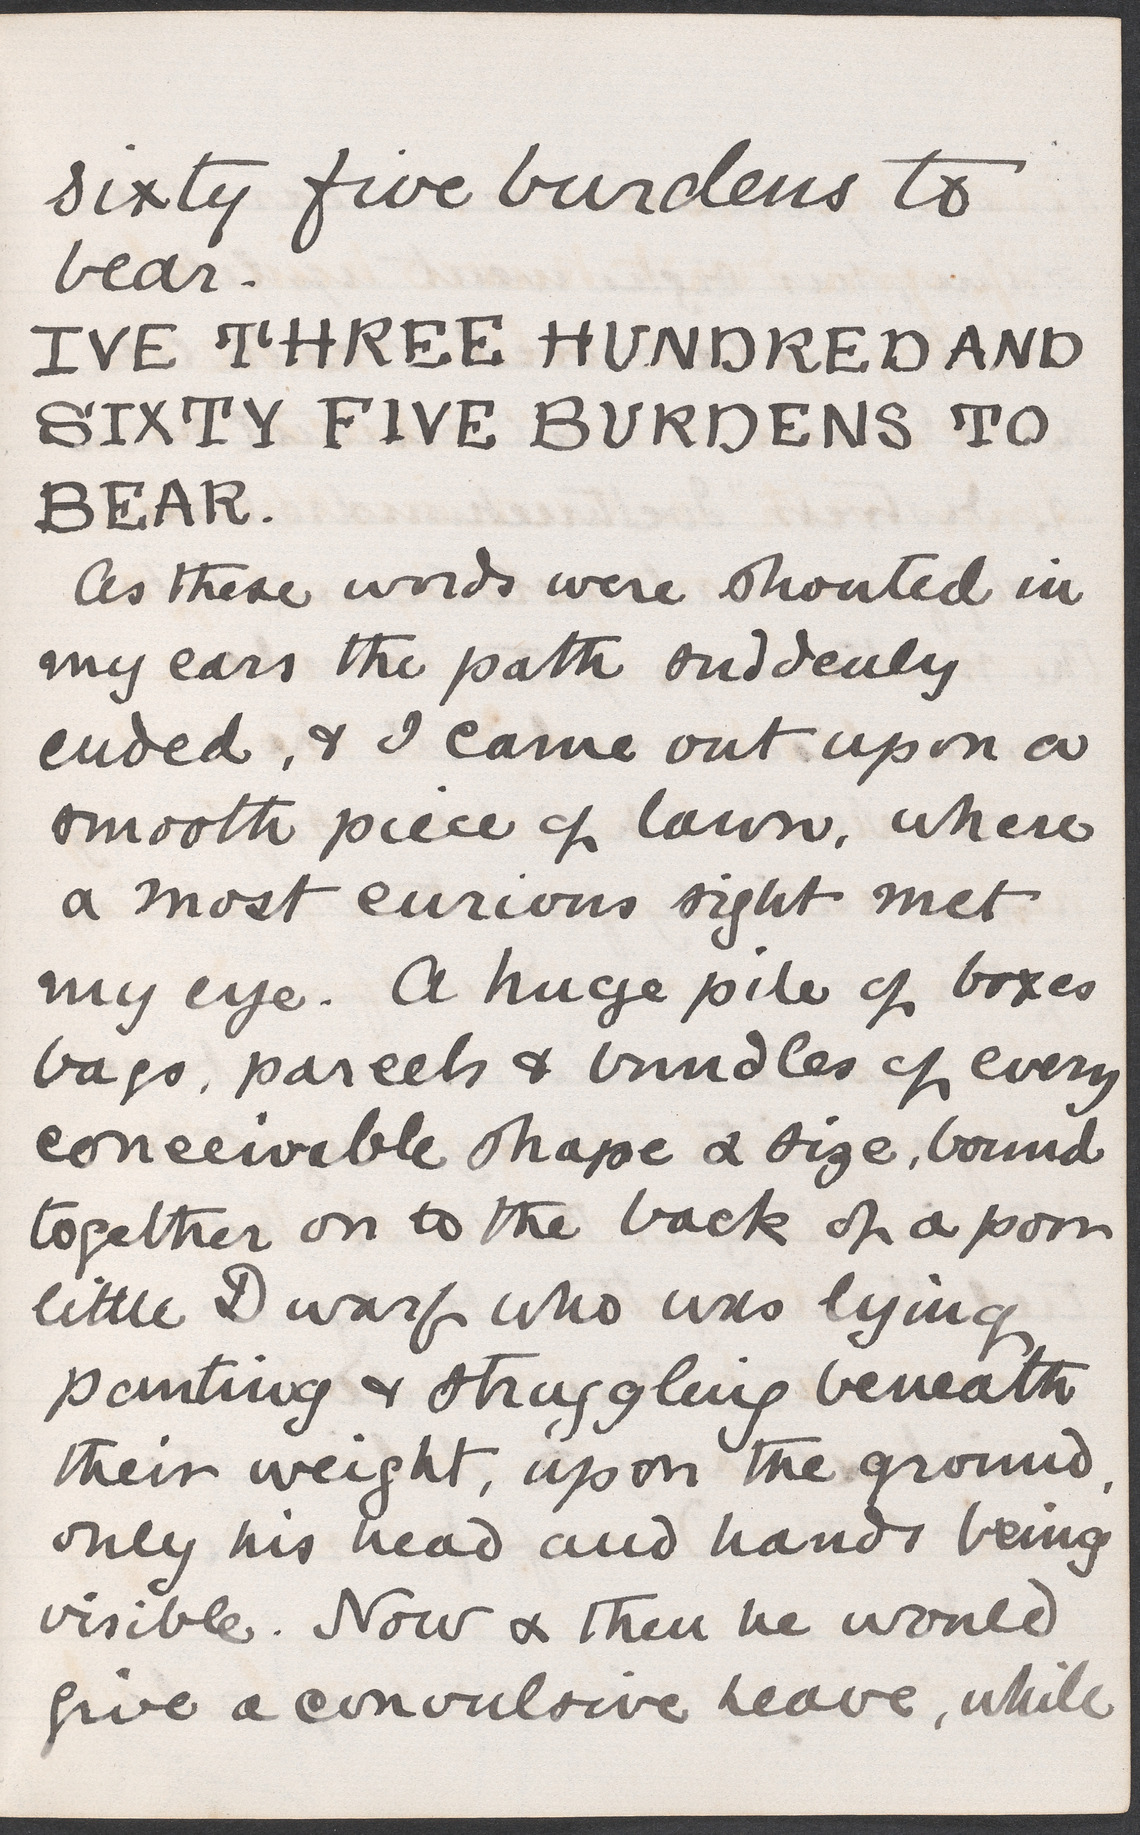 sixty five burdens to
bear.
IVE THREE HUNDRED AND
SIXTY FIVE BURDENS TO
BEAR.
As these words were shouted in
my ears the path suddenly
ended, & I came out upon a
smooth piece of lawn, where
a most curious sight met
my eye. A huge pile of boxes
bags, parcels & bundles of every
conceivable shape & size, bound
together on to the back of a poor
little Dwarf who was lying
panting & struggling beneath
their weight, upon the ground,
only his head and hands being
visible. Now & then he would
give a convulsive heave, while